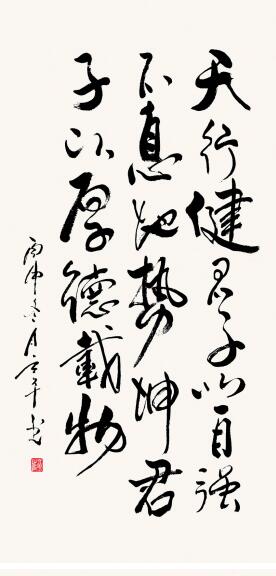 天行健君子以自强
不息地势坤君
子以厚德載物
丙申冬月